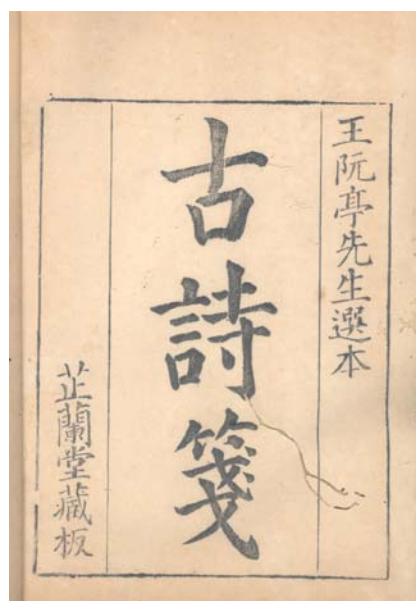 王阮亭先生選本
古詩箋
芷蘭堂藏板